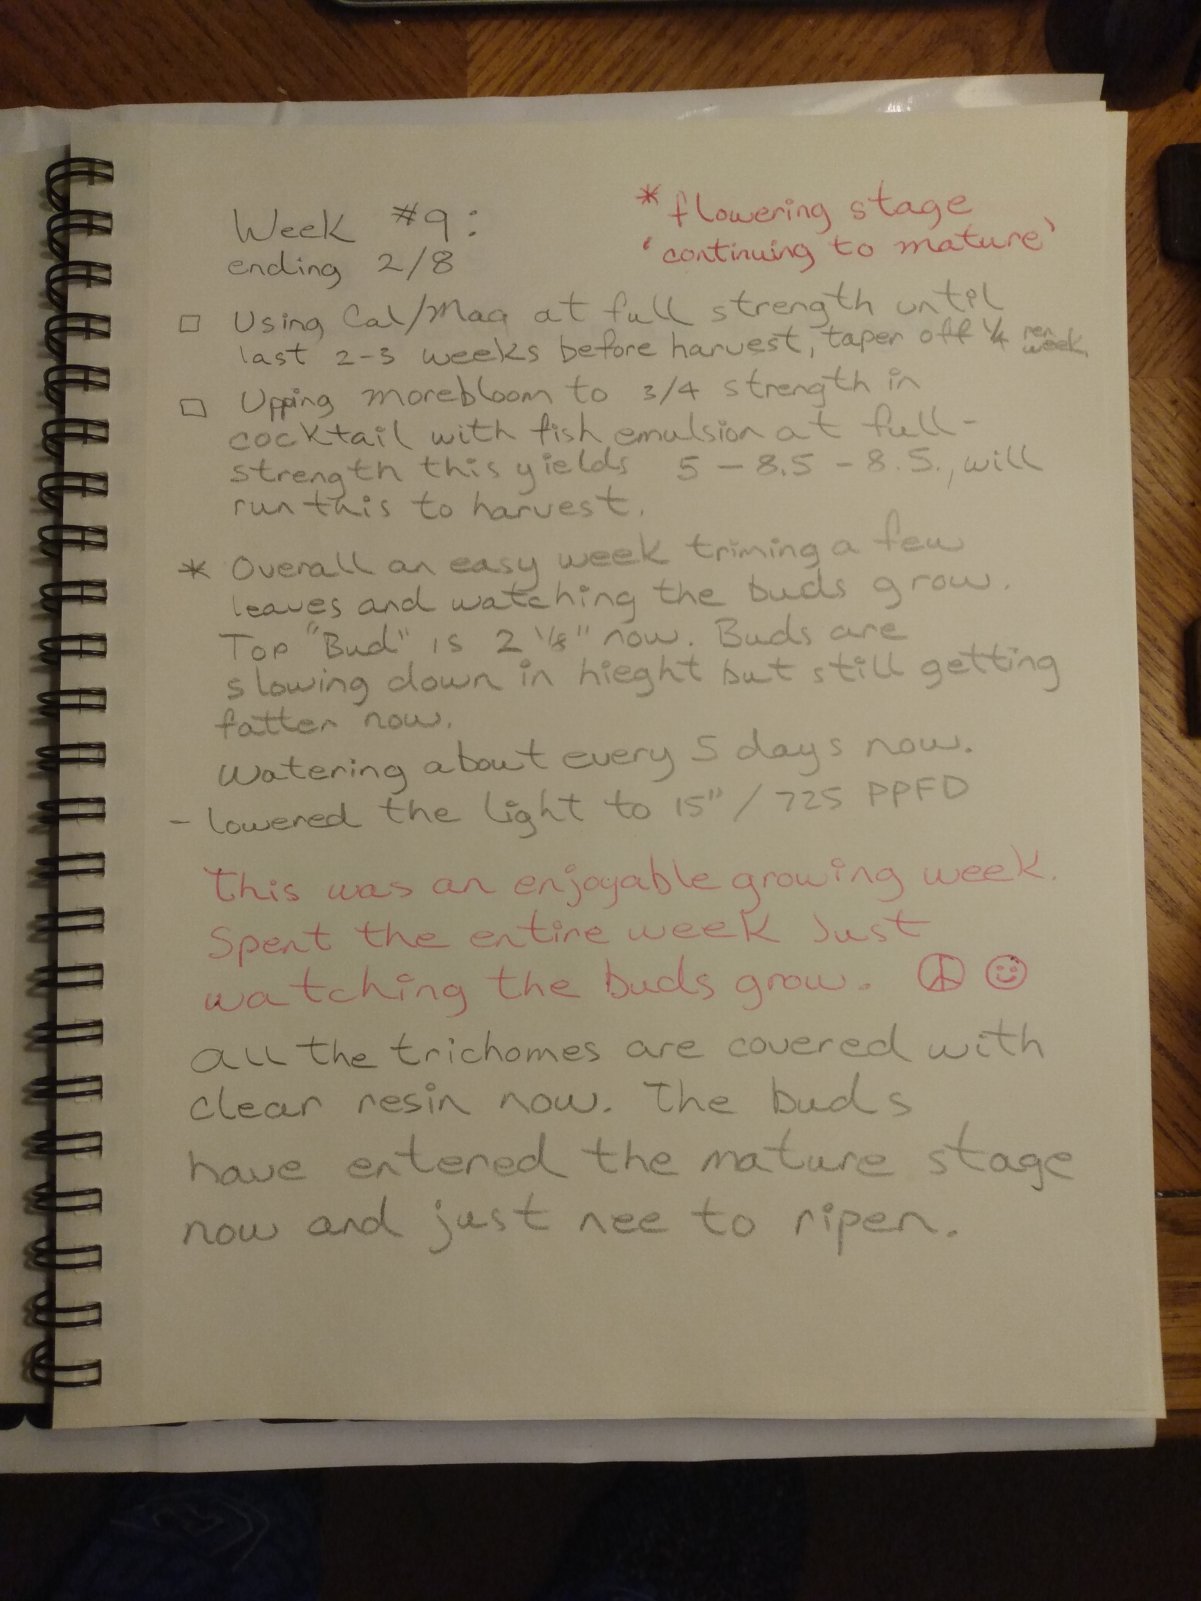 Week #9:
ending 2/8
* flowering stage
'continuing to mature'
□ Using Cal/Mag at full strength until
last 2-3 weeks before harvest, taper off 1/4 per week.
□ Upping morebloom to 3/4 strength in
cocktail with fish emulsion at full-
strength this yields 5 - 8.5 - 8.5., will
run this to harvest.
* Overall an easy week triming a few
leaves and watching the buds grow.
Top "Bud" is 2 1/8" now. Buds are
slowing down in hieght but still getting
fatter now.
Watering about every 5 days now.
- lowered the light to 15" / 725 PPFD
This was an enjoyable growing week.
Spent the entire week Just
watching the buds grow.
All the trichomes are covered with
clear resin now. The buds
have entered the mature stage
now and just nee to ripen.